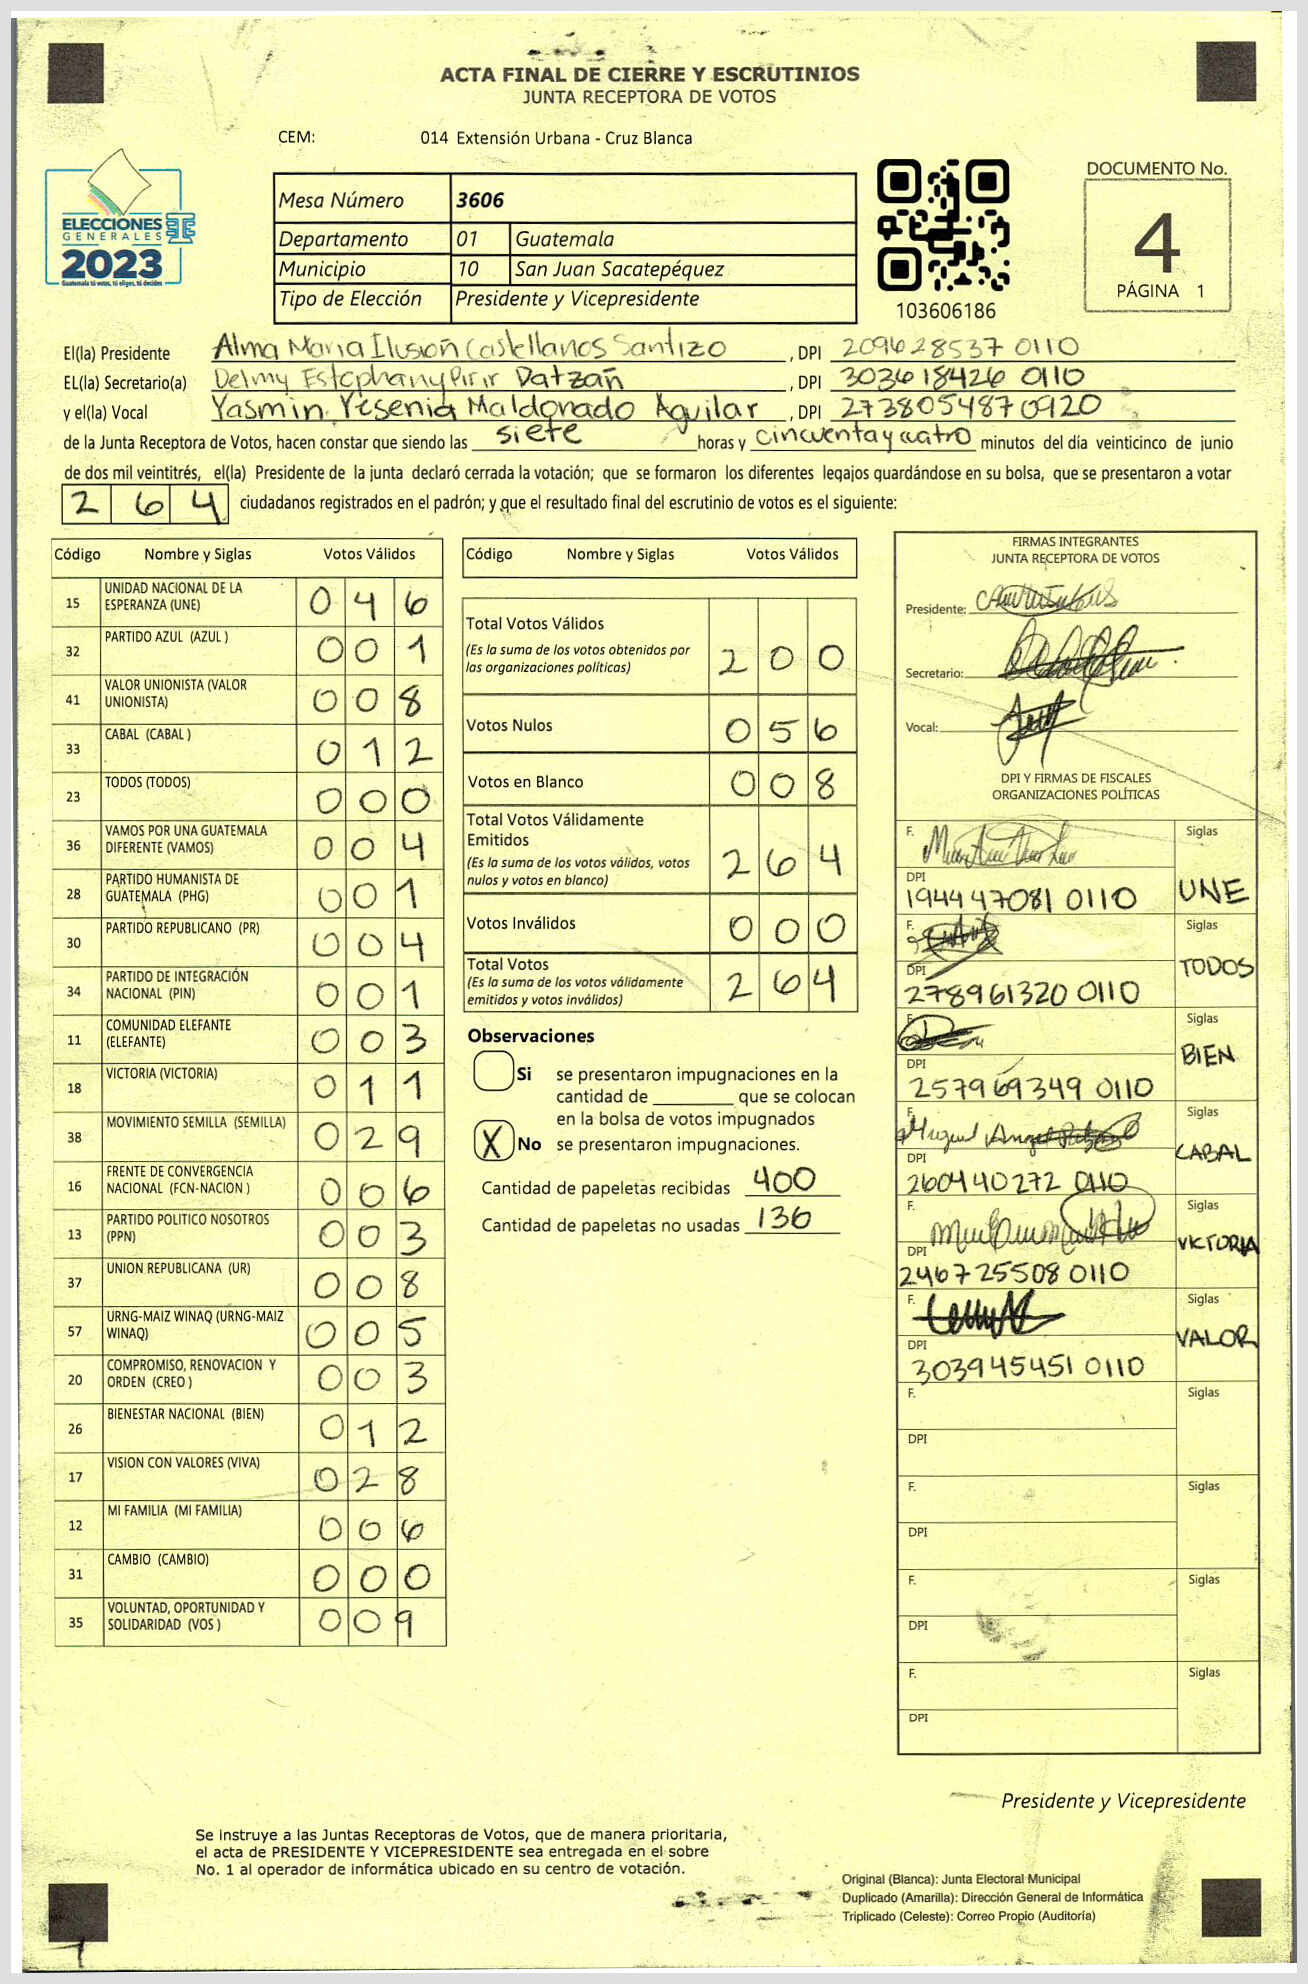 ACTA FINAL DE CIERRE Y ESCRUTINIOS
JUNTA RECEPTORA DE VOTOS
CEM: 014 Extensión Urbana - Cruz Blanca
ELECCIONES
GENERALES
2023
Guatemala tú votas, tú eliges, tú decides
Mesa Número 3606
Departamento 01 Guatemala
Municipio 10 San Juan Sacatepéquez
Tipo de Elección Presidente y Vicepresidente
103606186
DOCUMENTO No.
4
PÁGINA 1
El(la) Presidente Alma Maria Ilusión Castellanos Santizo, DPI 209628537 0110
EL(la) Secretario(a) Delmy Estephany Pirir Patzañ, DPI 303618426 0110
y el(la) Vocal Yasmin Yesenia Maldonado Aguilar, DPI 273805487 0920
de la Junta Receptora de Votos, hacen constar que siendo las siete horas y cincuenta y cuatro minutos del día veinticinco de junio
de dos mil veintitrés, el(la) Presidente de la junta declaró cerrada la votación; que se formaron los diferentes legajos guardándose en su bolsa, que se presentaron a votar
264 ciudadanos registrados en el padrón; y que el resultado final del escrutinio de votos es el siguiente:
Código Nombre y Siglas Votos Válidos
15 UNIDAD NACIONAL DE LA ESPERANZA (UNE) 046
32 PARTIDO AZUL (AZUL ) 001
41 VALOR UNIONISTA (VALOR UNIONISTA) 008
33 CABAL (CABAL ) 012
23 TODOS (TODOS) 000
36 VAMOS POR UNA GUATEMALA DIFERENTE (VAMOS) 004
28 PARTIDO HUMANISTA DE GUATEMALA (PHG) 001
30 PARTIDO REPUBLICANO (PR) 004
34 PARTIDO DE INTEGRACIÓN NACIONAL (PIN) 001
11 COMUNIDAD ELEFANTE (ELEFANTE) 003
18 VICTORIA (VICTORIA) 011
38 MOVIMIENTO SEMILLA (SEMILLA) 029
16 FRENTE DE CONVERGENCIA NACIONAL (FCN-NACION ) 006
13 PARTIDO POLITICO NOSOTROS (PPN) 003
37 UNION REPUBLICANA (UR) 008
57 URNG-MAIZ WINAQ (URNG-MAIZ WINAQ) 005
20 COMPROMISO, RENOVACION Y ORDEN (CREO ) 003
26 BIENESTAR NACIONAL (BIEN) 012
17 VISION CON VALORES (VIVA) 028
12 MI FAMILIA (MI FAMILIA) 006
31 CAMBIO (CAMBIO) 000
35 VOLUNTAD, OPORTUNIDAD Y SOLIDARIDAD (VOS ) 009
Código Nombre y Siglas Votos Válidos
Total Votos Válidos 200
(Es la suma de los votos obtenidos por
las organizaciones políticas)
Votos Nulos 056
Votos en Blanco 008
Total Votos Válidamente
Emitidos 264
(Es la suma de los votos válidos, votos
nulos y votos en blanco)
Votos Inválidos 000
Total Votos 264
(Es la suma de los votos válidamente
emitidos y votos inválidos)
Observaciones
Si se presentaron impugnaciones en la
cantidad de ________ que se colocan
en la bolsa de votos impugnados
X No se presentaron impugnaciones.
Cantidad de papeletas recibidas 400
Cantidad de papeletas no usadas 136
FIRMAS INTEGRANTES
JUNTA RECEPTORA DE VOTOS
Presidente:
Secretario:
Vocal:
DPI Y FIRMAS DE FISCALES
ORGANIZACIONES POLÍTICAS
F. Siglas
DPI
194447081 0110 UNE
F. Siglas
DPI
278961320 0110 TODOS
F. Siglas
DPI
257969349 0110 BIEN
F. Miguel Angel Siglas
DPI
260440272 0110 CABAL
F. Siglas
DPI
246725508 0110 VICTORIA
F. Siglas
DPI
303945451 0110 VALOR
F. Siglas
DPI
F. Siglas
DPI
F. Siglas
DPI
F. Siglas
DPI
Presidente y Vicepresidente
Se instruye a las Juntas Receptoras de Votos, que de manera prioritaria,
el acta de PRESIDENTE Y VICEPRESIDENTE sea entregada en el sobre
No. 1 al operador de informática ubicado en su centro de votación.
Original (Blanca): Junta Electoral Municipal
Duplicado (Amarilla): Dirección General de Informática
Triplicado (Celeste): Correo Propio (Auditoría)